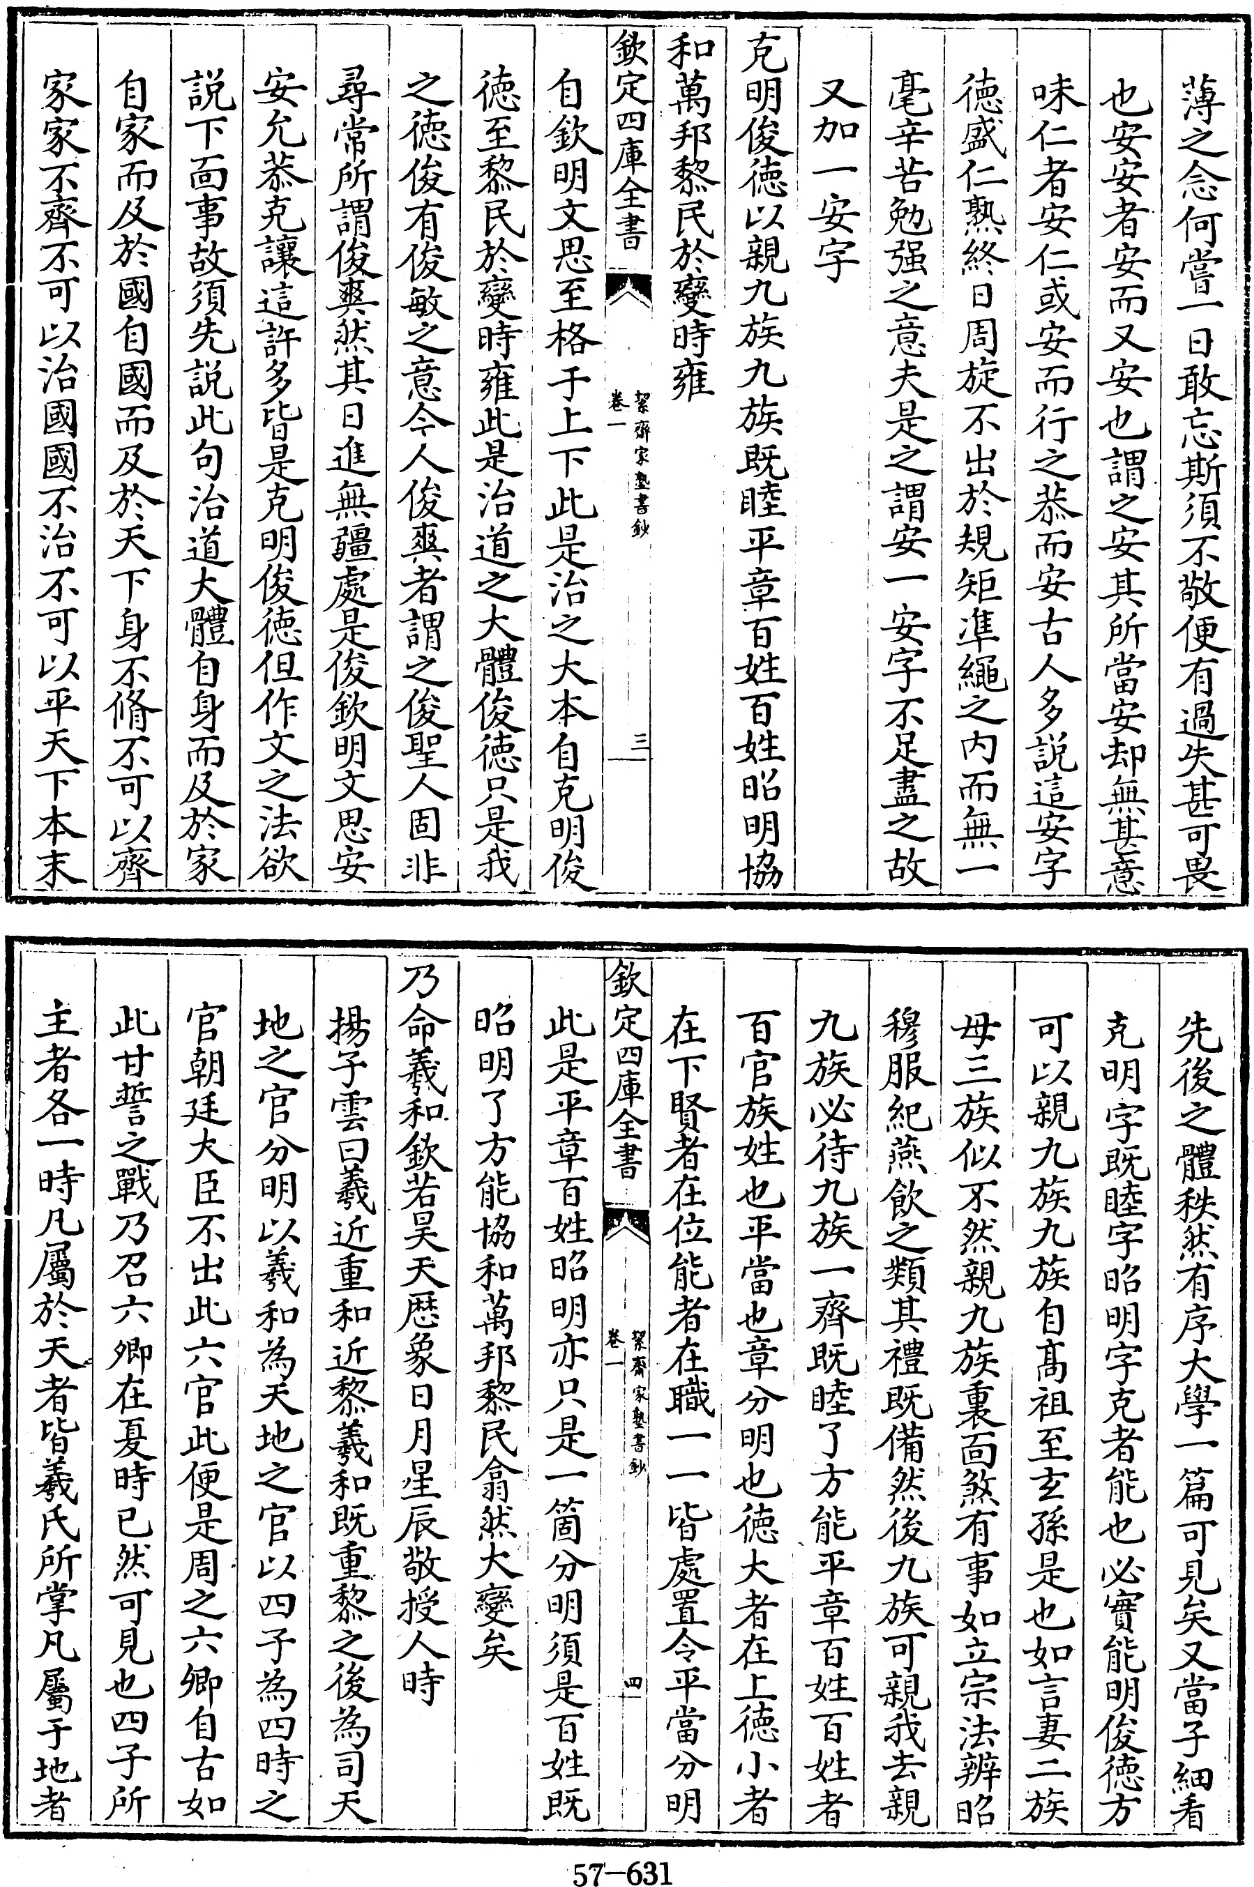 薄之念何嘗一日敢忘斯須不敬便有過失甚可畏
也安安者安而又安也謂之安其所當安却無甚意
味仁者安仁或安而行之恭而安古人多說這安字
德盛仁熟終日周旋不出於規矩準繩之内而無一
毫辛苦勉强之意夫是之謂安一安字不足盡之故
又加一安字
克明俊德以親九族九族既睦平章百姓百姓昭明協
和萬邦黎民於變時雍
欽定四庫全書
絜齋家塾書鈔
卷一
三
自欽明文思至格于上下此是治之大本自克明俊
德至黎民於變時雍此是治道之大體俊德只是我
之德俊有俊敏之意今人俊爽者謂之俊聖人固非
尋常所謂俊爽然其日進無疆處是俊欽明文思安
安允恭克讓這許多皆是克明俊德但作文之法欲
說下面事故須先說此句治道大體自身而及於家
自家而及於國自國而及於天下身不脩不可以齊
家家不齊不可以治國國不治不可以平天下本末
先後之體秩然有序大學一篇可見矣又當子細看
克明字既睦字昭明字克者能也必實能明俊德方
可以親九族九族自髙祖至玄孫是也如言妻二族
母三族似不然親九族裏面煞有事如立宗法辨昭
穆服紀燕飲之類其禮既備然後九族可親我去親
九族必待九族一齊既睦了方能平章百姓百姓者
百官族姓也平當也章分明也德大者在上德小者
在下賢者在位能者在職一一皆處置令平當分明
欽定四庫全書
絜齋家塾書鈔
卷一
四
此是平章百姓昭明亦只是一箇分明須是百姓既
昭明了方能協和萬邦黎民翕然大變矣
乃命羲和欽若昊天厯象日月星辰敬授人時
揚子雲曰羲近重和近黎羲和既重黎之後為司天
地之官分明以羲和為天地之官以四子為四時之
官朝廷大臣不出此六官此便是周之六卿自古如
此甘誓之戰乃召六卿在夏時已然可見也四子所
主者各一時凡屬於天者皆羲氏所掌凡屬于地者
57-631